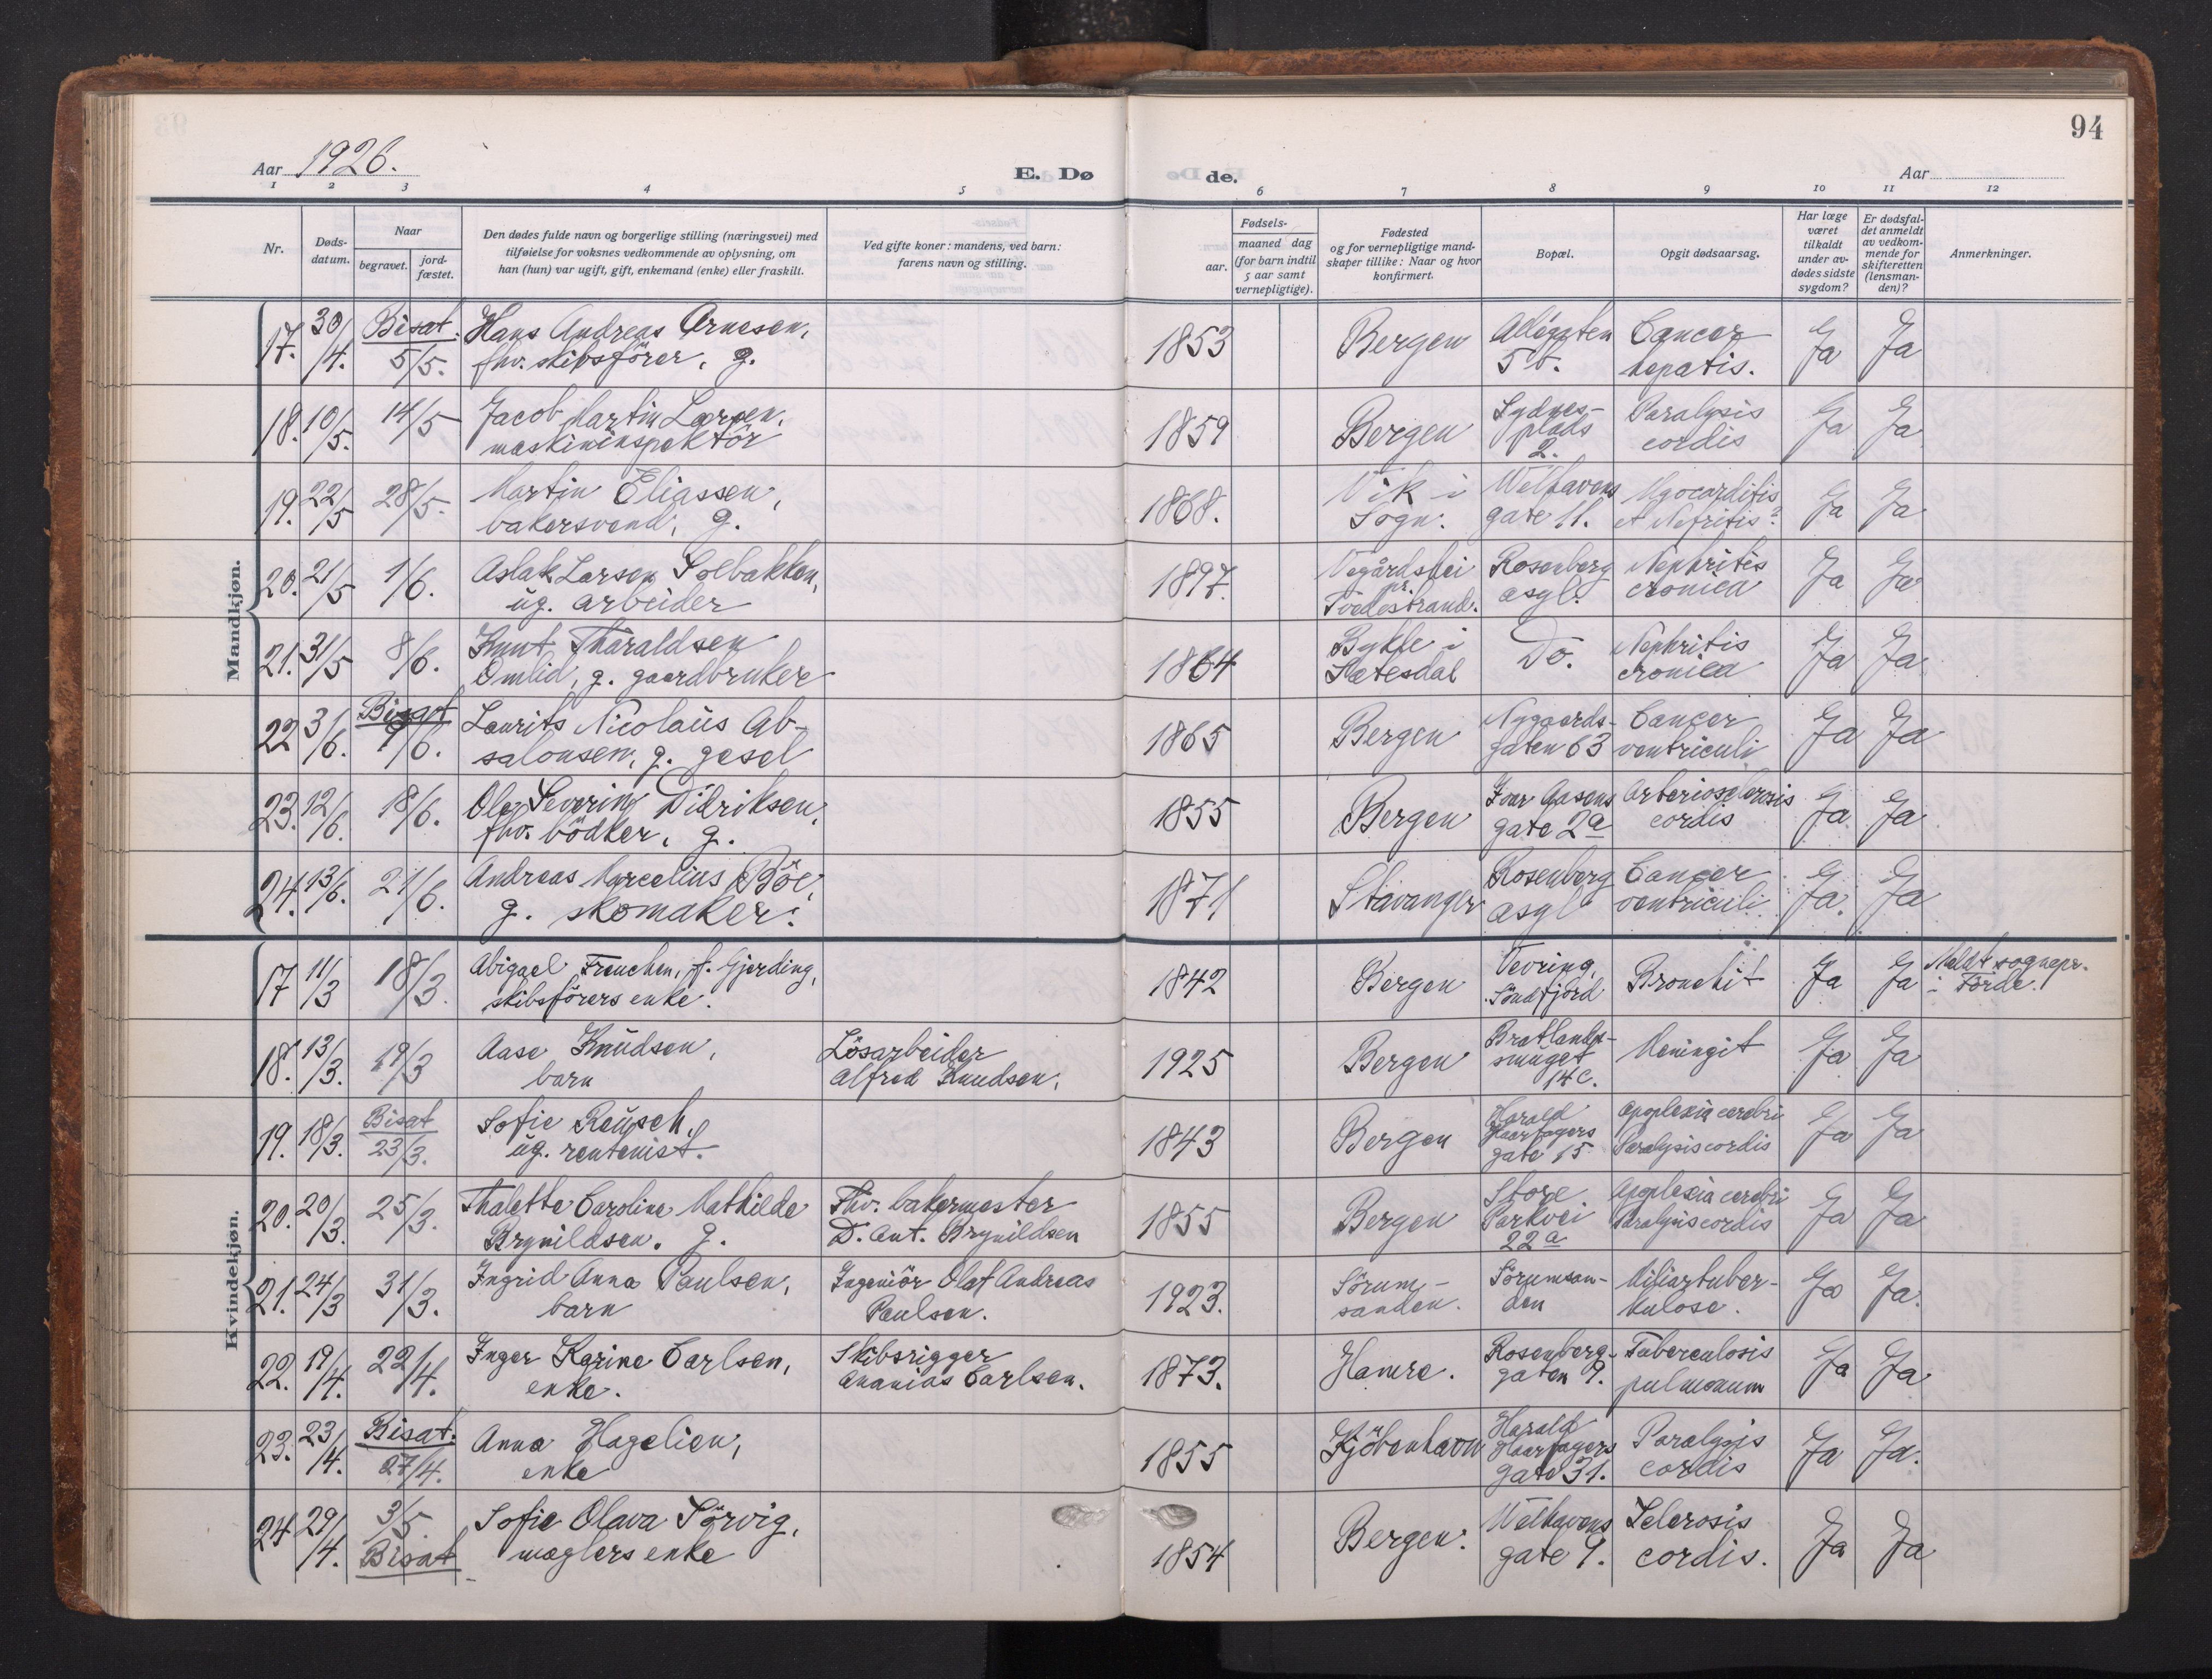 94
Aar 1926.
E. Dø de.
Aar
1 2 3 4 5 6 7 8 9 10 11 12
Nr.
Døds-
datum.
Naar
begravet.
jord-
fæstet.
Den dødes fulde navn og borgerlige stilling (næringsvei) med
tilføielse for voksnes vedkommende av oplysning, om
han (hun) var ugift, gift, enkemand (enke) eller fraskilt.
Ved gifte koner: mandens, ved barn:
farens navn og stilling.
Fødsels-
aar.
maaned dag
(for barn indtil
5 aar samt
vernepligtige).
Fødested
og for vernepligtige mand-
skaper tillike: Naar og hvor
konfirmert.
Bopæl.
Opgit dødsaarsag.
Har læge
været
tilkaldt
under av-
dødes sidste
sygdom?
Er dødsfal-
det anmeldt
av vedkom-
mende for
skifteretten
(lensman-
den)?
Anmerkninger.
Mandkjøn.
17. 30/4. Bisat. 5/5. Hans Andreas Arnesen, 1853 Bergen Allégaten Cancer Ja Ja
fhv. skibsfører, g. 5 b. hepatis.
18. 10/5. 14/5 Jacob Martin Larsen, 1859 Bergen Sydnes- Paralysis Ja Ja
maskininspektör plads cordis
2.
19. 22/5 28/5. Martin Eliassen, 1868. Vik i Welhavens Myocarditis Ja Ja
bakersvend, g. Sogn. gate 11. et Nefritis?
20. 21/5 1/6. Aslak Larsen Solbakken, 1897. Vegårdshei Rosenberg Nephritis Ja Ja
ug. arbeider pr. asyl. cronica
Tvedestrand.
21. 31/5 8/6. Knut Tharaldsen 1864 Bykle i Do. Nephritis Ja Ja
Omlid, g. gaardbruker Sætesdal cronica
22 3/6. Bisat 9/6. Laurits Nicolaus Ab- 1865 Bergen Nygaards- Cancer Ja Ja
salonsen, g. gesel gaten 63 ventriculi
23. 12/6. 18/6. Ole Severin Didriksen, 1855 Bergen Ivar Aasens Arteriosclerosis Ja Ja
fhv. bödker, g. gate 2a cordis
24. 13/6. 21/6. Andreas Marcelius Böe, 1871 Stavanger Rosenberg Cancer Ja. Ja
g. skomaker. asyl ventriculi
Kvindekjøn.
17 11/3 18/3. Abigael Freuchen, f. Gjerding, 1842 Bergen Vevring, Bronchit Ja Ja Meldt sognepr.
skibsförers enke. Söndfjord i Förde.
18. 13/3. 19/3 Aase Knudsen, Lösarbeider 1925 Bergen Bratlands- Meningit Ja Ja
barn Alfred Knudsen. smuget
14c.
19. 18/3. Bisat 23/3. Sofie Reusch, 1843 Bergen Harald Apoplexia cerebri Ja Ja
ug. rentenist. Haarfagers Paralysis cordis
gate 15
20. 20/3. 25/3. Thalette Caroline Mathilde Fhv. bakermester 1855 Bergen Store Apoplexia cerebri Ja Ja
Brynildsen. g. D. Ant. Brynildsen Parkvei Paralysis cordis
22a
21. 24/3 31/3. Ingrid Anna Paulsen, Ingeniör Olaf Andreas 1923. Sörum- Sörumsan- Miliartuber- Ja Ja.
barn Paulsen. sanden. den kulose.
22. 19/4. 22/4. Inger Karine Carlsen, Skibsrigger 1873. Hamre. Rosenberg- Tuberculosis Ja Ja
enke. Ananias Carlsen. gaten 9. pulmonum
23. 23/4. Bisat. 27/4. Anna Hagelien, 1855 Kjöbenhavn Harald Paralysis Ja Ja.
enke Haarfagers cordis
gate 31.
24 29/4. 3/5. Bisat Sofie Olava Sörvig, 1854 Bergen. Welhavens Sclerosis Ja Ja
mæglers enke gate 9. cordis.